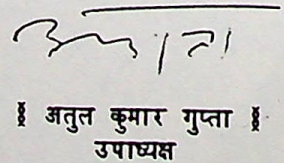 अतुल कुमार गुप्ता
उपाध्यक्ष